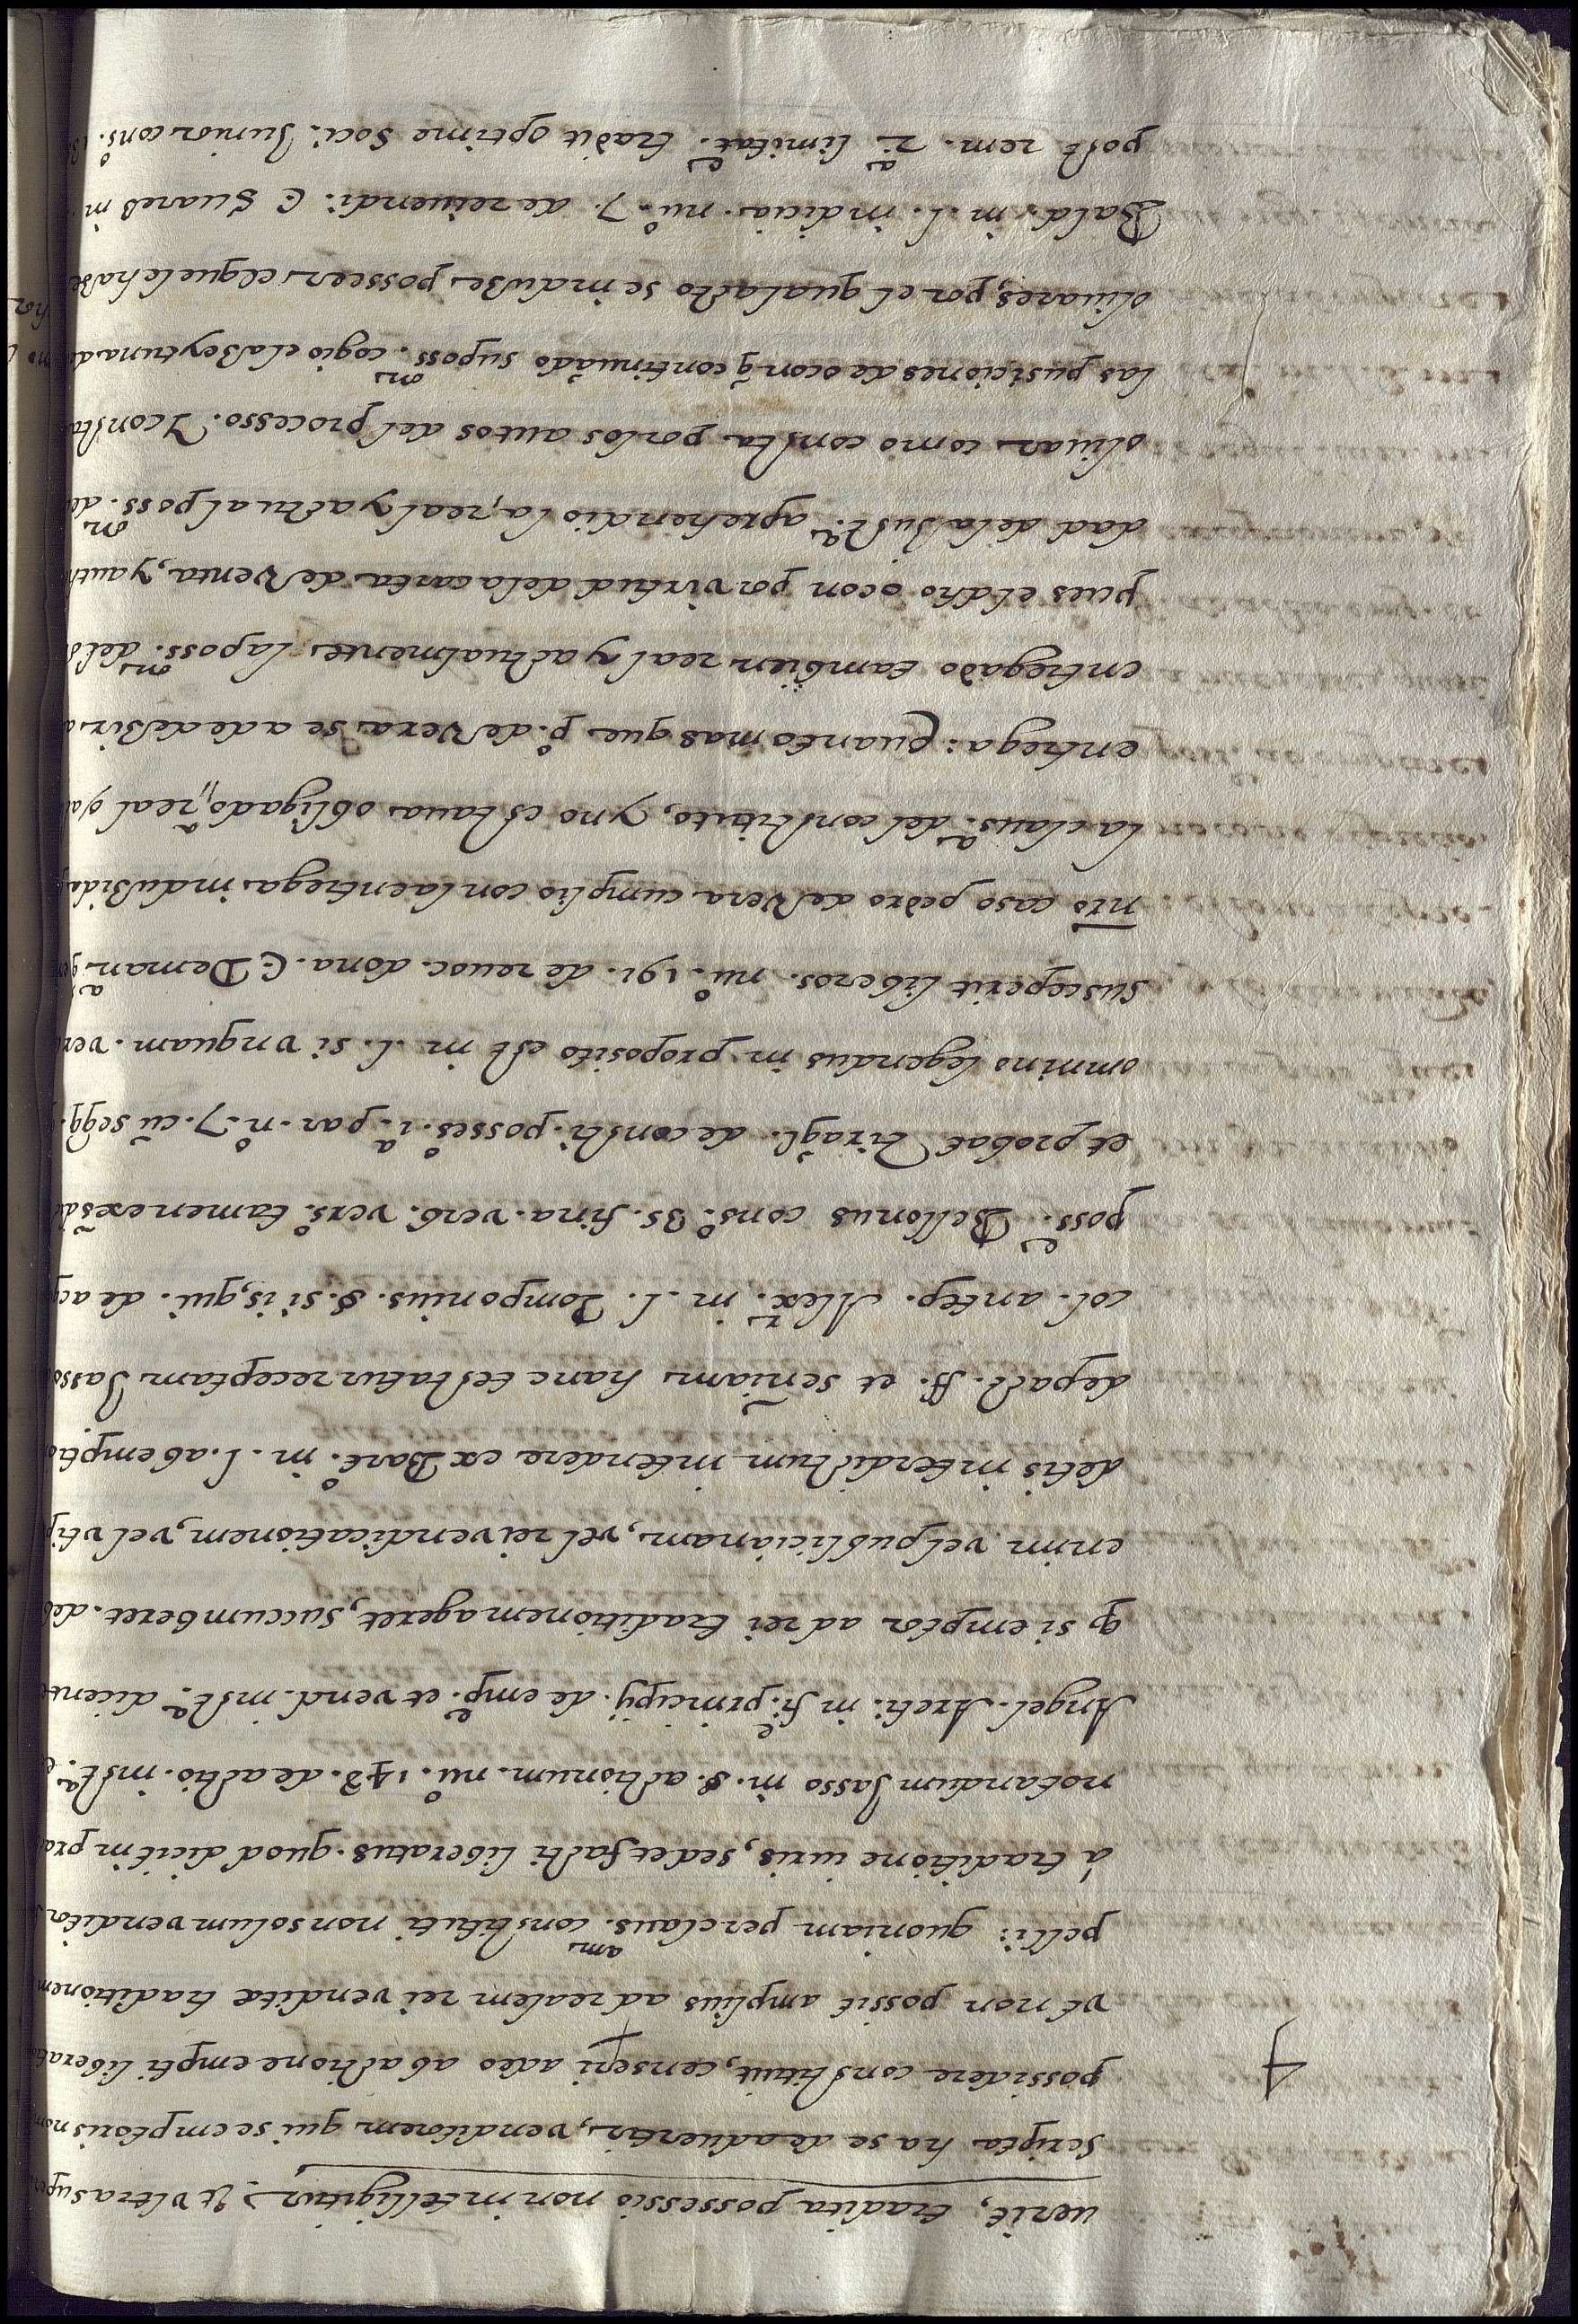 uerit, tradita possessio non intelligitur. Et vltra super
scripta ha se de aduertir, venditorem qui se emptoris no
possidere constituit, censeri adeo ab actione empti libera
vt non possit amplius ad realem rei venditæ traditionem
pelli: quoniam per claus.am constituti non solum venditor
à traditione iuris, sed et facti liberatus. quod dicit in pra
notandum Jasso in §. actionum. nu.o 148. de actio. inst.a
Angel. Areti. in fi.e principij. de emp.e et vend. inst.a dicente
q si emptor ad rei traditionem ageret, succumberet. deb
enim vel publicianam, vel rei vendicationem, vel vti p
detis interdictum intendere ex Bart.o in l. ab emptio
de pact. ff. et senīam hanc testatur receptam Jasso
col. antep. Alex.r in l. Pomponius. §. si is, qui. de acq
poss.e Bellonus cons.o 35. fina. verb. vers.o tamen
et probat Tiraql. de consti. posses. 1.a par. n.o 7. cū seqq.
omnino legendus in proposito est in l. si vnquam. ver
susceperit liberos. nu.o 191. de reuoc. dona. E De man.a
nro caso pedro de Vera cumplio con la entrega induzida
la claus.a del constituto, y no estaua obligado a real
entrega: Quanto mas que p.o de Vera se a de dezir
entregado tambien real y actualmente la poss.on del
pues el dho ocon por virtud de la carta de Venta, y auth
dad de la Just.a aprehendio la, real y actual poss.on de
oliuar como consta por los autos del processo. Y consta
las pusiciones de ocon q̄ continuādo su poss.on cogio el azeytuna de
oliuares, por el qual acto se induze posseer el que le haze
Bald. in l. indicia. nu.o 7. de rei uendi. E Suares in
post rem. 2.a limitat.e tradit optime Soci. Junior cons.o